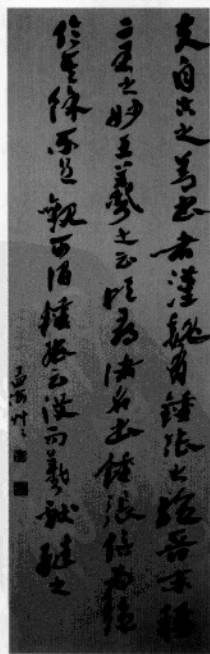 夫自古之善書者漢魏有鍾張之絕晉末稱
二王之妙王羲之云頃尋諸名書鍾張信為絕
倫其餘不足觀可謂鍾張云沒而羲獻繼之